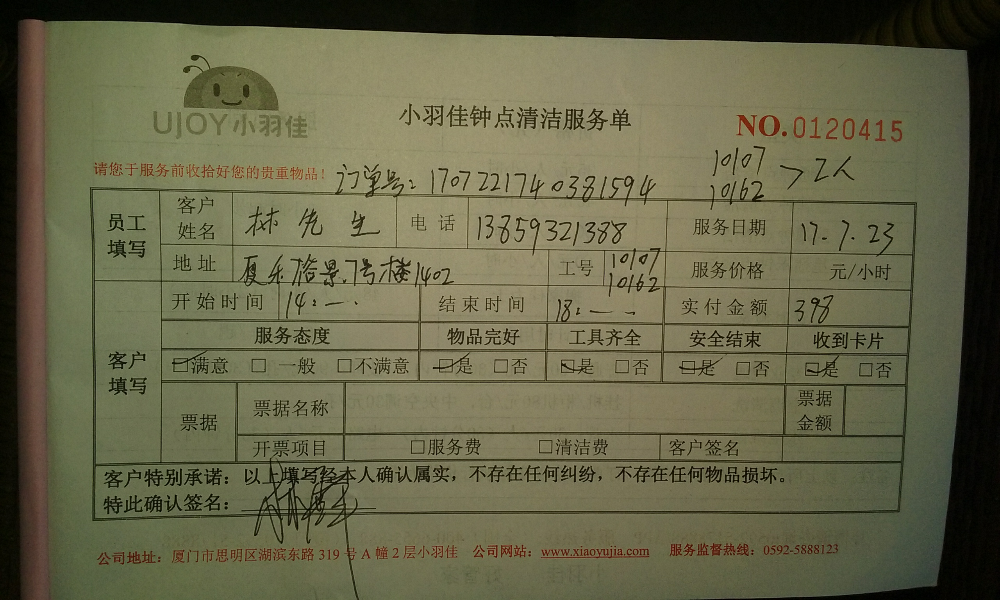 UJOY小羽佳
小羽佳钟点清洁服务单
NO.0120415
请您于服务前收拾好您的贵重物品!
订单号:1707221740381594
10107
10162 >2人
员工填写 客户姓名 林先生 电话 13859321388 服务日期 17.7.23
地址 夏禾裕景7号楼1402 工号 10107 10162 服务价格 元/小时
客户填写 开始时间 14:一. 结束时间 18:一- 实付金额 398
服务态度 物品完好 工具齐全 安全结束 收到卡片
☑满意 □一般 □不满意 ☑是 □否 ☑是 □否 ☑是 □否 ☑是 □否
票据 票据名称 票据金额
开票项目 □服务费 □清洁费 客户签名
客户特别承诺:以上填写经本人确认属实,不存在任何纠纷,不存在任何物品损坏。
特此确认签名:
公司地址:厦门市思明区湖滨东路319号A幢2层小羽佳 公司网站:www.xiaoyujia.com 服务监督热线:0592-5888123